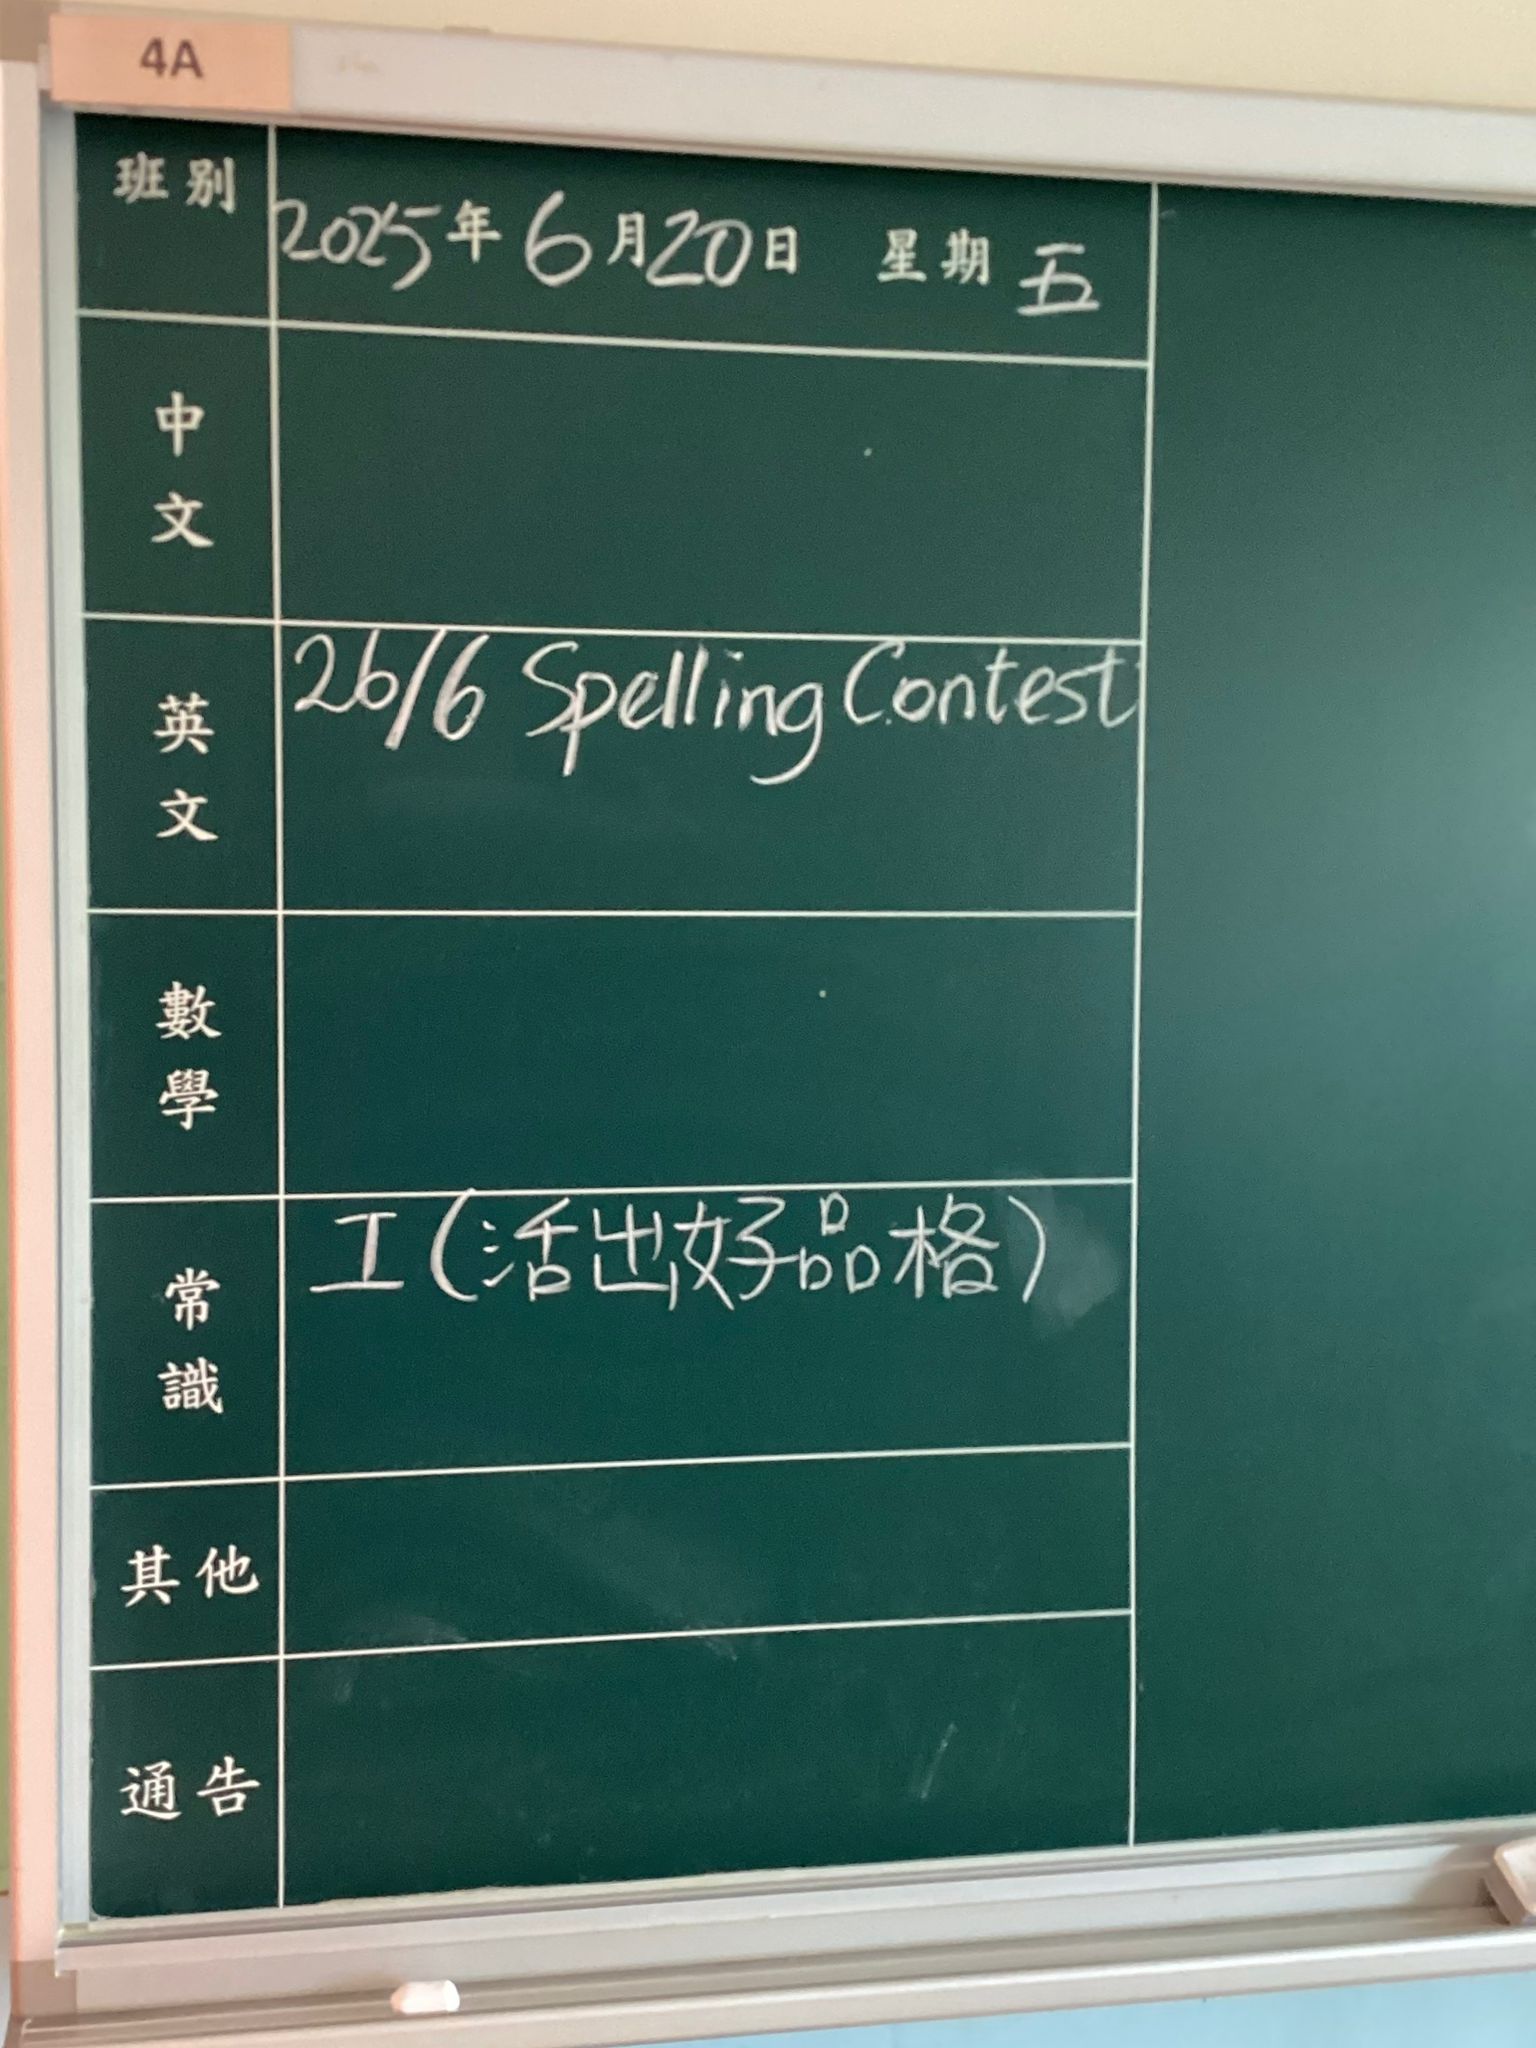 4A
班別
2025年6月20日 星期五
中文
英文
26/6 Spelling Contest
數學
常識
工(活出好品格)
其他
通告